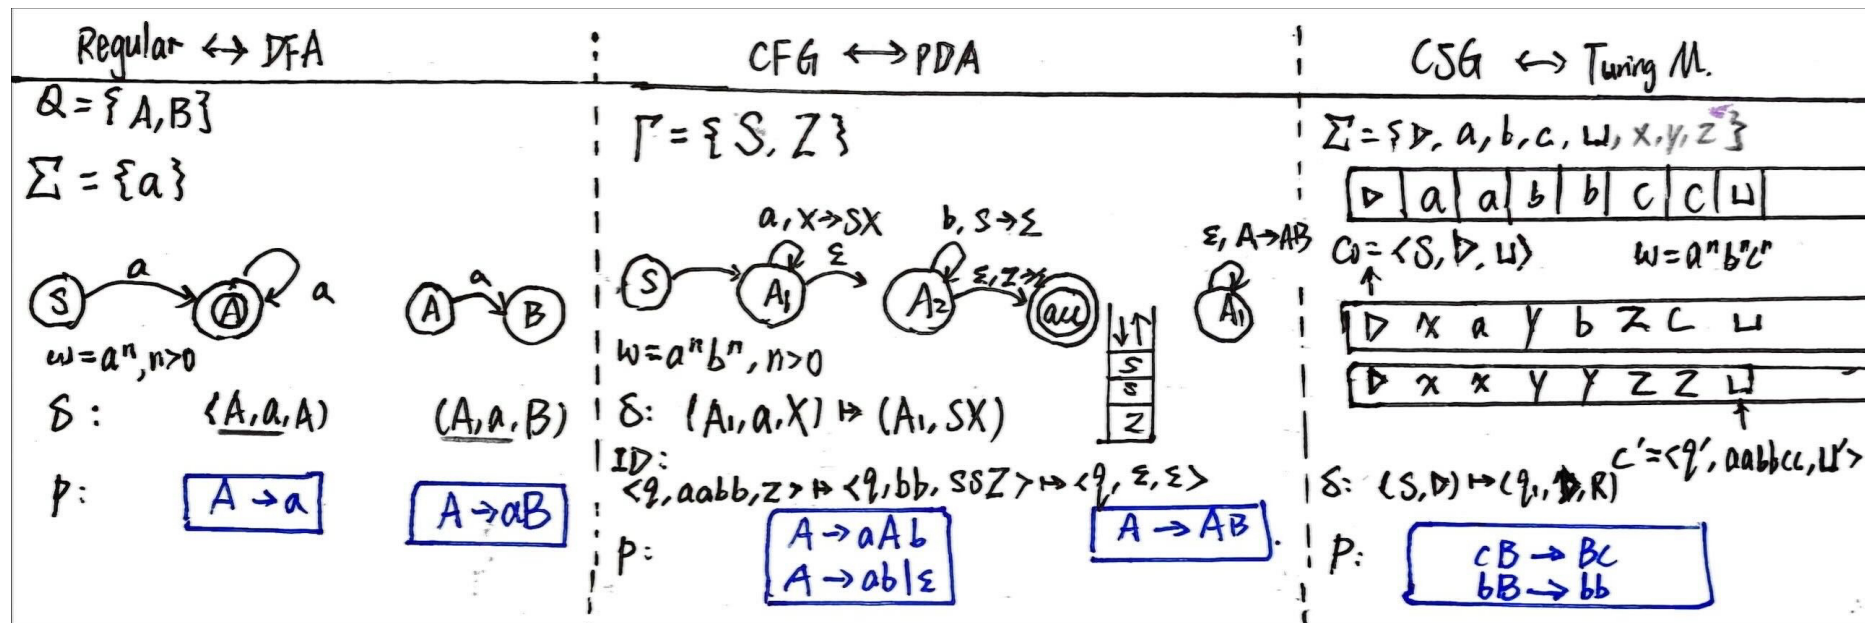 Regular ↔ DFA
Q = {A, B}
Σ = {a}
S a A a
A a B
w = aⁿ, n>0
δ: (A, a, A) (A, a, B)
p: A → a A → aB
CFG ↔ PDA
Γ = {S, Z}
a, X → SX
b, S → Σ
ε, A → AB
S A₁ ε A₂ Σ, Z→ acc A₁
w = aⁿbⁿ, n>0
S
S
Z
δ: (A₁, a, X) ↦ (A₁, SX)
ID:
<q, aabb, z> ↦ <q, bb, SSZ> ↦ <q, Σ, Σ>
p: A → aAb
A → ab|Σ
A → AB
CSG ↔ Turing M.
Σ = {▷, a, b, c, ⊔, x, y, z}
▷ a a b b c c ⊔
C₀ = <S, ▷, ⊔> w = aⁿbⁿcⁿ
▷ x a y b z c ⊔
▷ x x y y z z ⊔
c' = <q', aabbcc, ⊔'>
δ: (S, ▷) ↦ (q₁, ▷, R)
p: cB → Bc
bB → bb